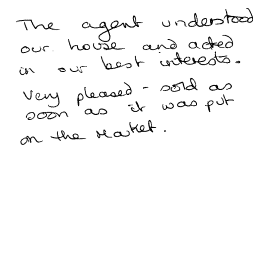 The agent understood
our house and acted
in our best interests.
Very pleased - sold as
soon as it was put
on the Market.